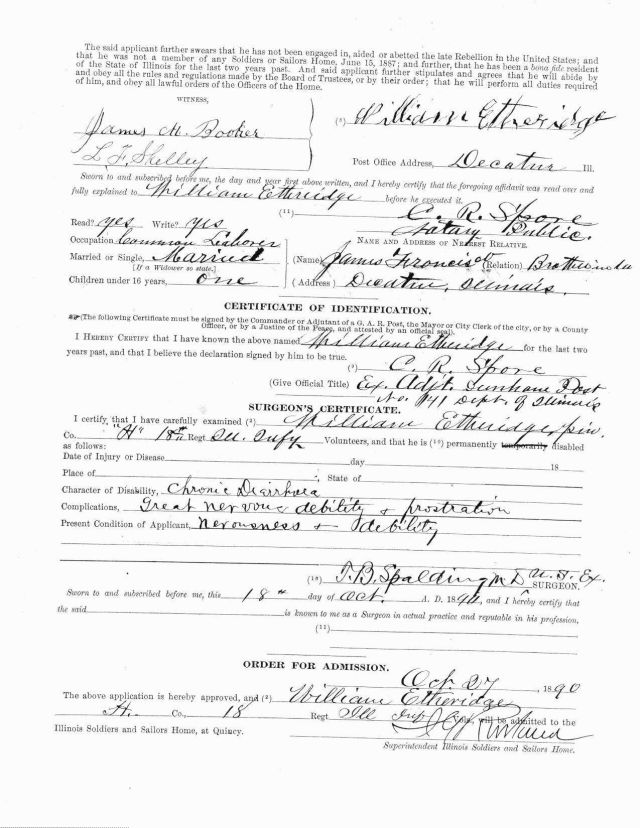 The said applicant further swears that he has not been engaged in, aided or abetted the late Rebellion in the United States; and
that he was not a member of any Soldiers or Sailors Home, June 15, 1887; and further, that he has been a bona fide resident
of the State of Illinois for the two years past. And said applicant further stipulates and agrees that he will abide by
and obey all the rules and regulations made by the Board of Trustees, or by their order; that he will perform all duties required
of him, and obey all lawful orders of the Officers of the Home.
WITNESS,
James M. Booker
L F Shelley
William Etheridge
Post Office Address, Decatur Ill.
Sworn to and subscribed before me, the day and year first above written, and I hereby certify that the foregoing affidavit was read over and
fully explained to William Etheridge before he executed it.
(11) C. R. Spore
Notary Public.
Read? yes Write? yes
Occupation Common Laborer
Married or Single, Married
[If a Widower so state.]
Children under 16 years, one
NAME AND ADDRESS OF NEAREST RELATIVE.
(Name) James Francisco (Relation) Brotherinlaw
(Address) Decatur, Illinois.
CERTIFICATE OF IDENTIFICATION.
(The following Certificate must be signed by the Commander or Adjutant of a G. A. R. Post, the Mayor or City Clerk of the city, or by a County
Officer, or by a Justice of the Peace, and attested by an official seal).
I HEREBY CERTIFY that I have known the above named William Etheridge for the last two
years past, and that I believe the declaration signed by him to be true.
C. R. Spore
(Give Official Title) Ex. Adjt. Dunham Post
No. 141 Dept. of Illinois
SURGEON'S CERTIFICATE.
I certify, that I have carefully examined (2) William Etheridge, priv.
Co. "H" 18th Regt Ill. Infy Volunteers, and that he is (16) permanently temporarily disabled
as follows:
Date of Injury or Disease day 18
Place of State of
Character of Disability, Chronic Diarrhoea
Complications, Great nervous debility & prostration
Present Condition of Applicant, nervousness + debility
T. B. Spalding M D U. S. Ex.
SURGEON.
Sworn to and subscribed before me, this 18th day of Oct. A. D. 1890, and I hereby certify that
the said is known to me as a Surgeon in actual practice and reputable in his profession.
(11)
ORDER FOR ADMISSION.
Oct 27 1890
The above application is hereby approved, and (2) William Etheridge
H. Co., 18 Regt Ill Inf Vols., will be admitted to the
Illinois Soldiers and Sailors Home, at Quincy.
Superintendent Illinois Soldiers and Sailors Home.